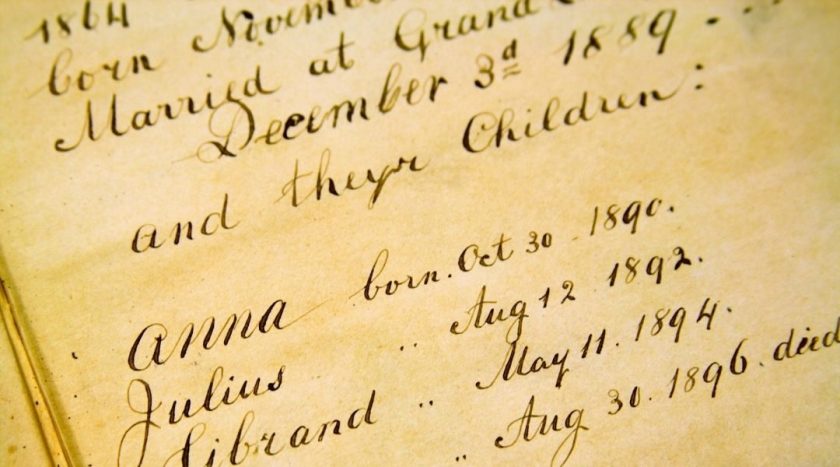 1864
born Novem
Married at Grand
December 3d 1889 . . .
and theyr Children:
Anna born. Oct 30. 1890.
Julius " Aug 12 1892.
librand " May 11. 1894.
" Aug 30. 1896. died